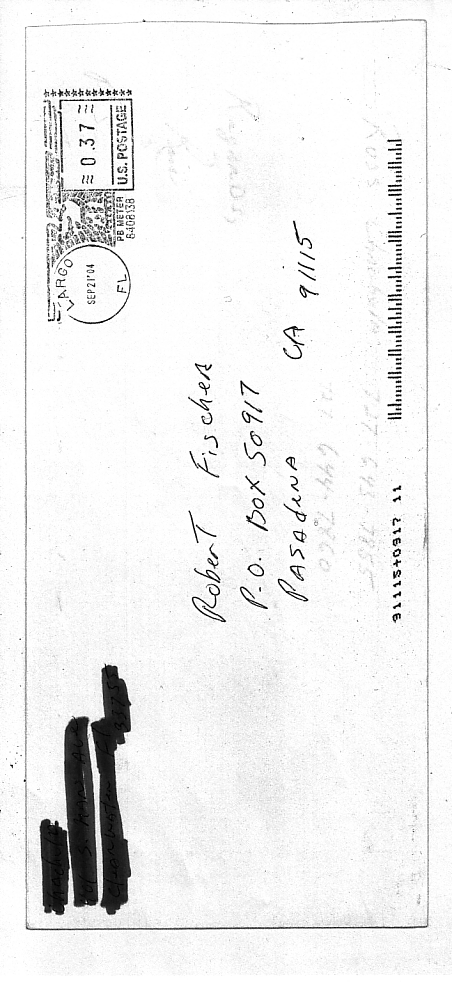 ≈ 0.37 ≈
U.S. POSTAGE
PB METER
8408138
LARGO
SEP 21 '04
FL
Robert Fischer
P.O. Box 50917
Pasadena CA 91115
91115+0917 11